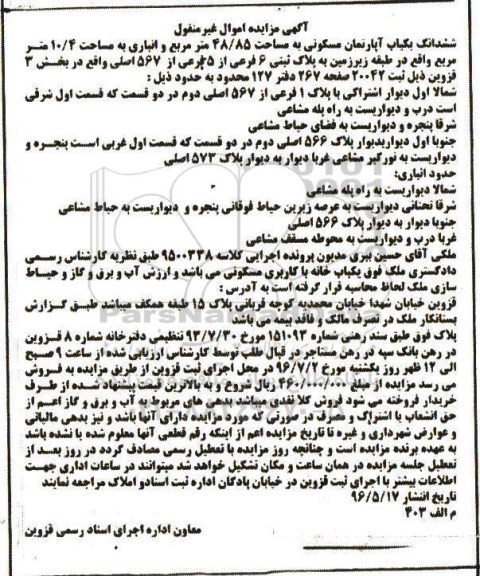 آگهی مزایده اموال غیرمنقول
ششدانگ یکباب آپارتمان مسکونی به مساحت ۴۸/۸۵ متر مربع و انباری به مساحت ۱۰/۴ متر
مربع واقع در طبقه زیرزمین به پلاک ثبتی ۶ فرعی از ۲۵فرعی از ۵۶۷ اصلی واقع در بخش ۳
قزوین ذیل ثبت ۲۰۰۴۲ صفحه ۲۶۷ دفتر ۱۲۷ محدود به حدود ذیل :
شمالا اول دیوار اشتراکی با پلاک ۱ فرعی از ۵۶۷ اصلی دوم در دو قسمت که قسمت اول شرقی
است درب و دیواریست به راه پله مشاعی
شرقا پنجره و دیواریست به فضای حیاط مشاعی
جنوبا اول دیواربدیوار پلاک ۵۶۶ اصلی دوم در دو قسمت که قسمت اول غربی است پنجره و
دیواریست به نورگیر مشاعی غربا دیوار به دیوار پلاک ۵۷۳ اصلی
حدود انباری:
شمالا دیواریست به راه پله مشاعی
شرقا تحتانی دیواریست به عرصه زیرین حیاط فوقانی پنجره و دیواریست به حیاط مشاعی
جنوبا دیوار به دیوار پلاک ۵۶۶ اصلی
غربا درب و دیواریست به محوطه مسقف مشاعی
ملکی آقای حسین ببری مدیون پرونده اجرایی کلاسه ۹۵۰۰۳۳۸ طبق نظریه کارشناس رسمی
دادگستری ملک فوق یکباب خانه با کاربری مسکونی می باشد و ارزش آب و برق و گاز و حیاط
سازی ملک لحاظ محاسبه قرار گرفته است به آدرس :
قزوین خیابان شهدا خیابان محمدیه کوچه قربانی پلاک ۱۵ طبقه همکف میباشد طبق گزارش
بستانکار ملک در تصرف مالک و فاقد بیمه می باشد
پلاک فوق طبق سند رهنی شماره ۱۵۱۰۹۳ مورخ ۹۳/۷/۳۰ تنظیمی دفترخانه شماره ۸ قزوین
در رهن بانک سپه در رهن مستاجر در قبال طلب توسط کارشناس ارزیابی شده از ساعت ۹ صبح
الی ۱۲ ظهر روز یکشنبه مورخ ۹۶/۷/۲ در محل اجرای ثبت قزوین از طریق مزایده به فروش
می رسد مزایده از مبلغ ۴۶۰/۰۰۰/۰۰۰ ریال شروع و به بالاترین قیمت پیشنهاد شده از طرف
خریدار فروخته می شود فروش کلا نقدی میباشد بدهی های مربوط به آب و برق و گاز اعم از
حق انشعاب یا اشتراک و مصرف در صورتی که مورد مزایده دارای آنها باشد و نیز بدهی مالیاتی
و عوارض شهرداری و غیره تا تاریخ مزایده اعم از اینکه رقم قطعی آنها معلوم شده یا نشده باشد
به عهده برنده مزایده است و چنانچه روز مزایده با تعطیل رسمی مصادف گردد در روز بعد از
تعطیل جلسه مزایده در همان ساعت و مکان تشکیل خواهد شد میتوانند در ساعات اداری جهت
اطلاعات بیشتر با اجرای ثبت قزوین در خیابان پادگان اداره ثبت اسنادو املاک مراجعه نمایند
تاریخ انتشار ۹۶/۵/۱۷
م الف ۴۰۳
معاون اداره اجرای اسناد رسمی قزوین